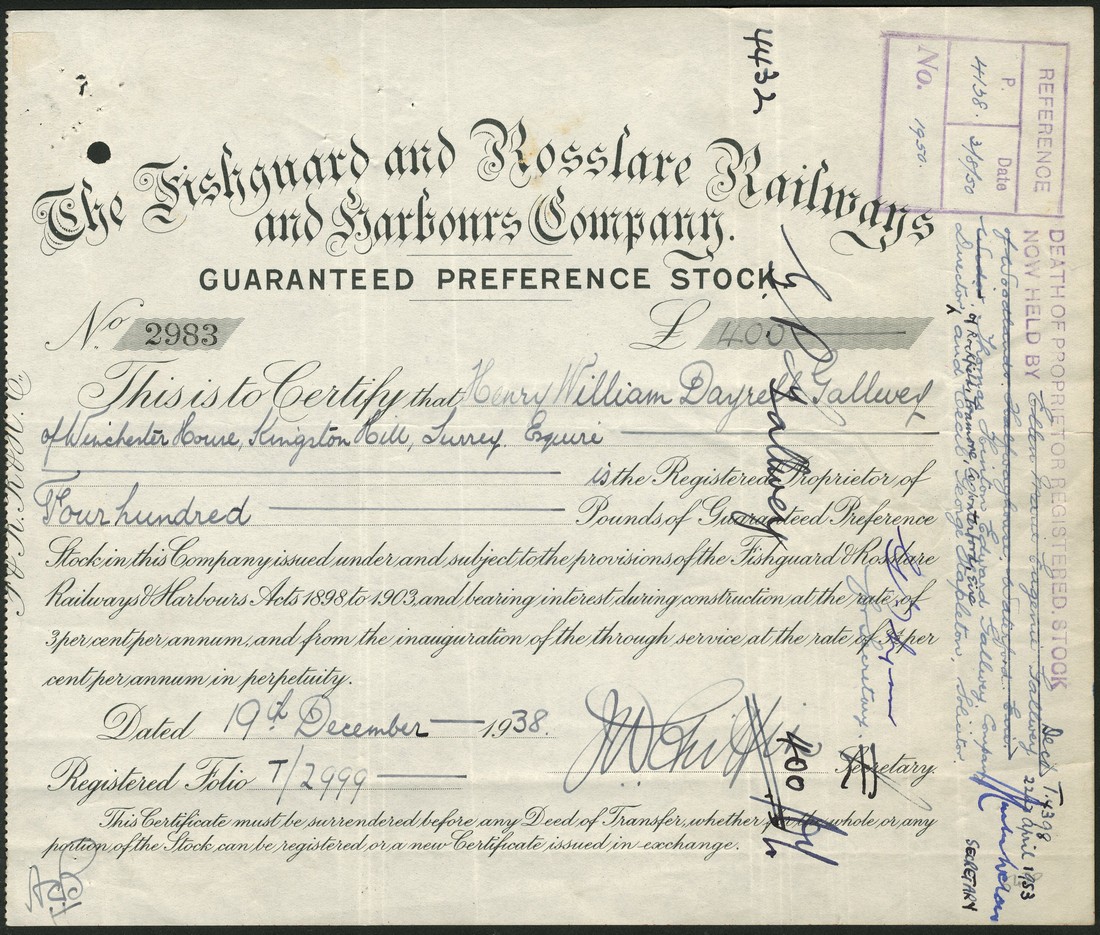 The Fishguard and Rosslare Railways
and Harbours Company.
GUARANTEED PREFERENCE STOCK
No. 2983 £ 400
This is to Certify that Henry William Dayrell Gallwey
of Winchester House, Kingston Hill, Surrey. Esquire
is the Registered Proprietor of
Four hundred Pounds of Guaranteed Preference
Stock in this Company issued under and subject to the provisions of the Fishguard & Rosslare
Railways & Harbours Acts 1898 to 1903, and bearing interest during construction at the rate of
3 per cent per annum, and from the inauguration of the through service at the rate of 3½ per
cent per annum in perpetuity.
Dated 19th December 1938.
Registered Folio T/2999
Secretary.
This Certificate must be surrendered before any Deed of Transfer, whether for the whole or any
portion of the Stock can be registered or a new Certificate issued in exchange.
4432
Gallwey
400
Secretary.
REFERENCE
P. Date
4138. 3/8/50
No. 1950.
DEATH OF PROPRIETOR REGISTERED. STOCK
NOW HELD BY Ellen Marie Eugenie Gallwey Decd
of Woodlands, Waterford.
Thomas Edward Gallwey, Company
Director, and Cecil George Stapleton, Solicitor.
of Rockfield, Tramore, Co. Waterford, Eire
T.4398
22nd April 1953
SECRETARY